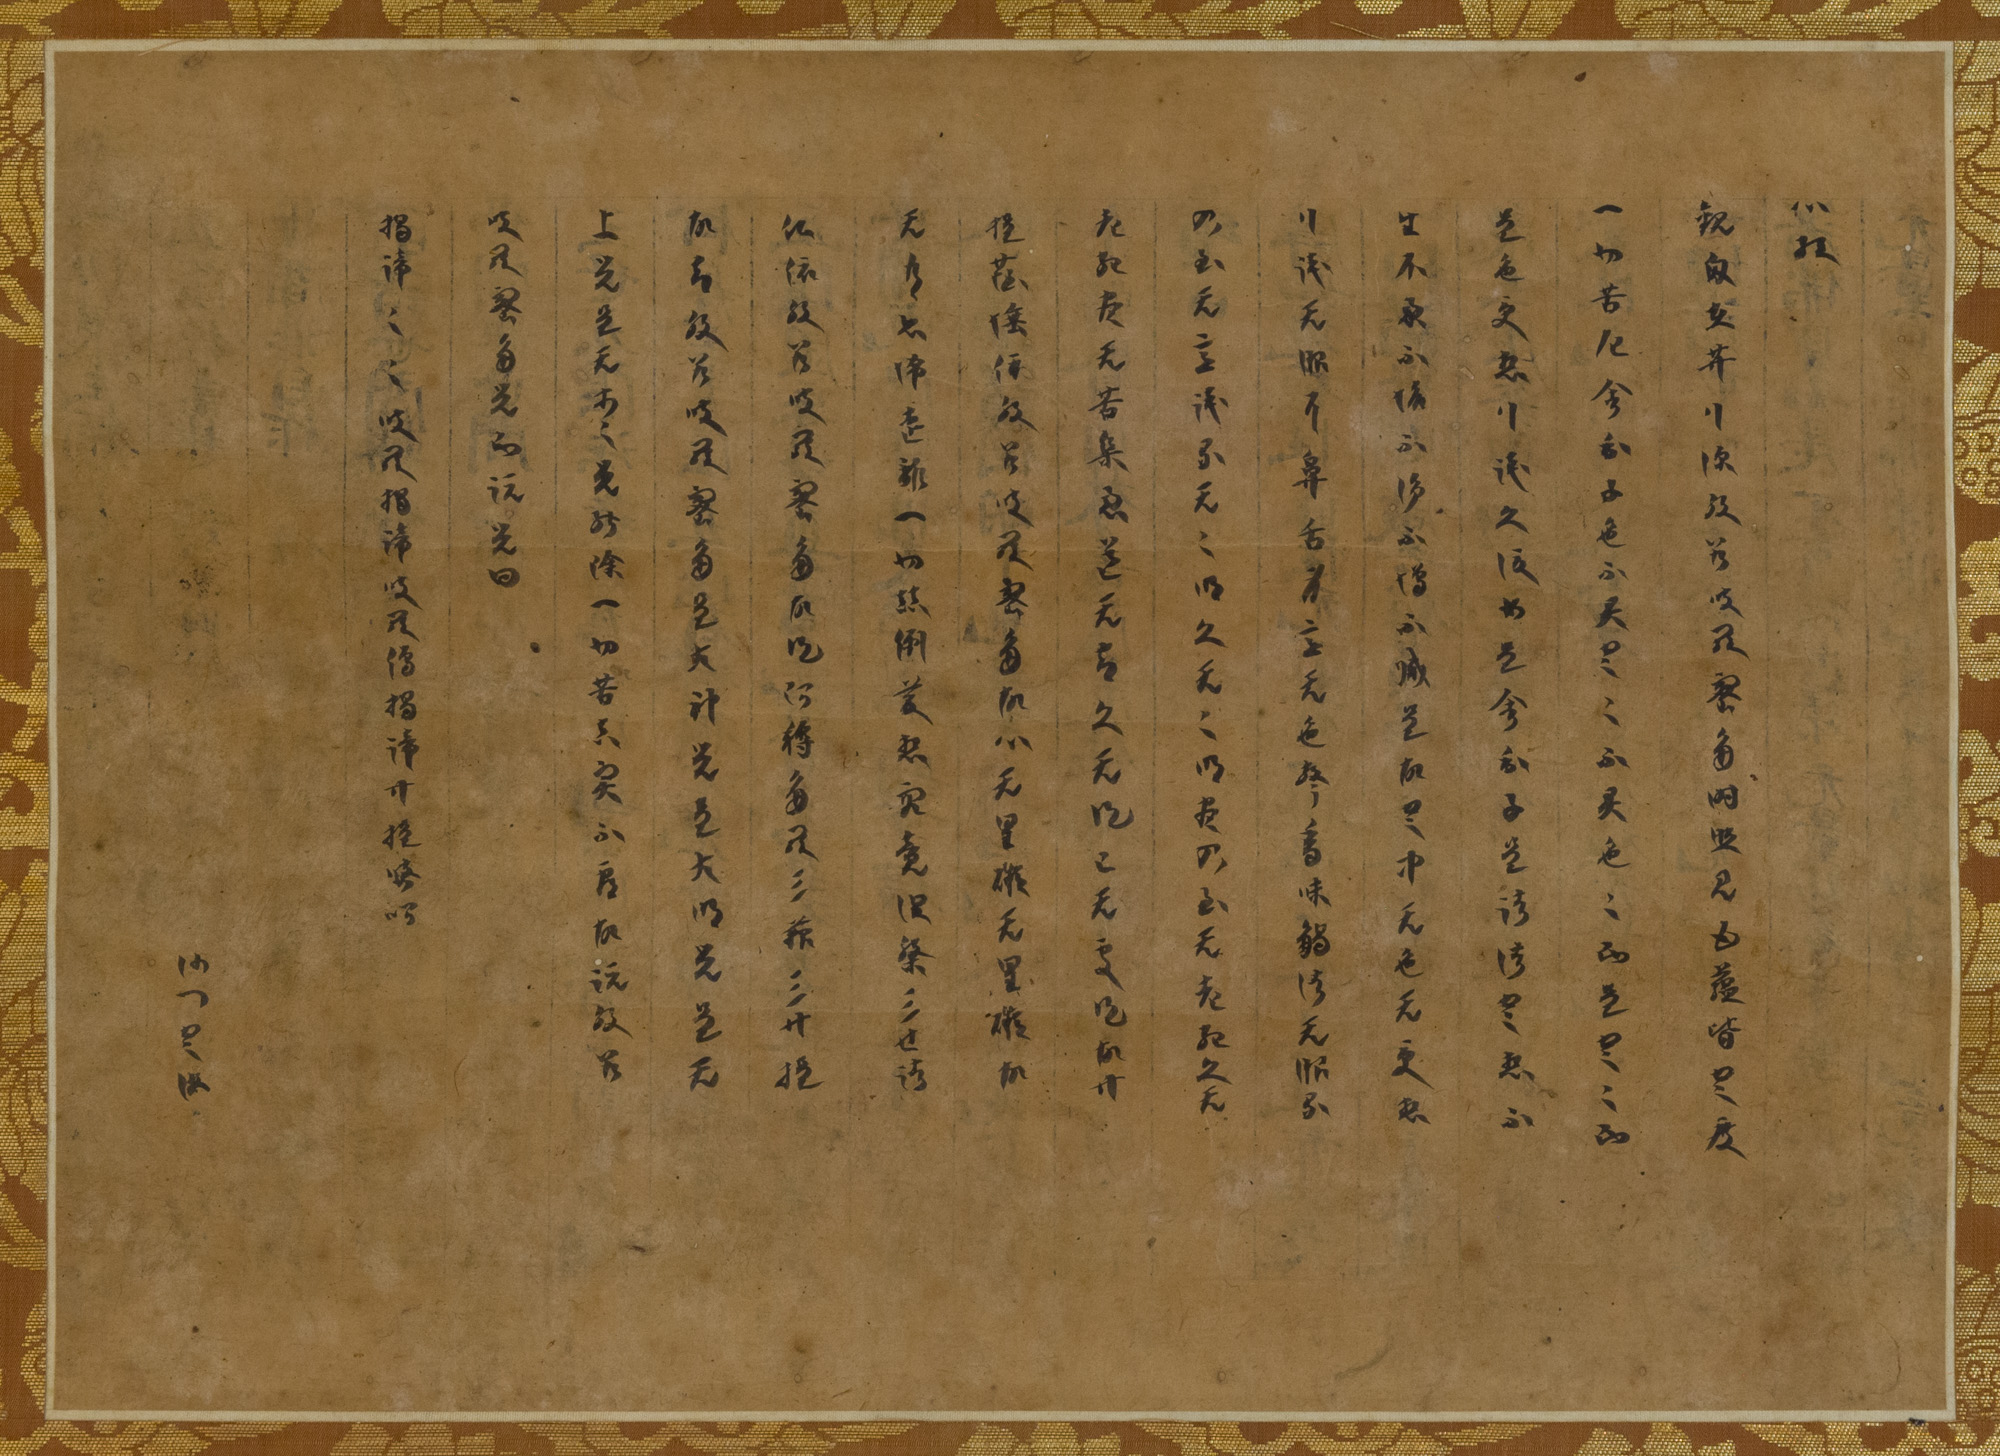 心経
観自在菩行深般若波羅蜜多時照見五蘊皆空度
一切苦厄舎利子色不異空〻不異色〻即是空〻即
是色受想行識久復如是舎利子是諸法空想不
生不滅不垢不浄不増不減是故空中无色无受想
行識无眼耳鼻舌身意无色声香味触法无眼界
乃至无意識界无〻明久无〻明尽乃至无老死久无
老死尽无苦集滅道无智久无得已无處得故廾
提薩埵依般若波羅蜜多故心无罣礙无罣礙故
无有恐怖遠離一切顛倒夢想究竟涅槃三世諸
仏依般若波羅蜜多故得阿耨多羅三藐三廾提
故知般若波羅蜜多是大神咒是大明咒是无
上咒是无等〻咒能除一切苦真実不虚故説般若
波羅蜜多咒即説咒曰
揭諦〻〻波羅揭諦波羅僧揭諦廾提娑呵
沙门空海